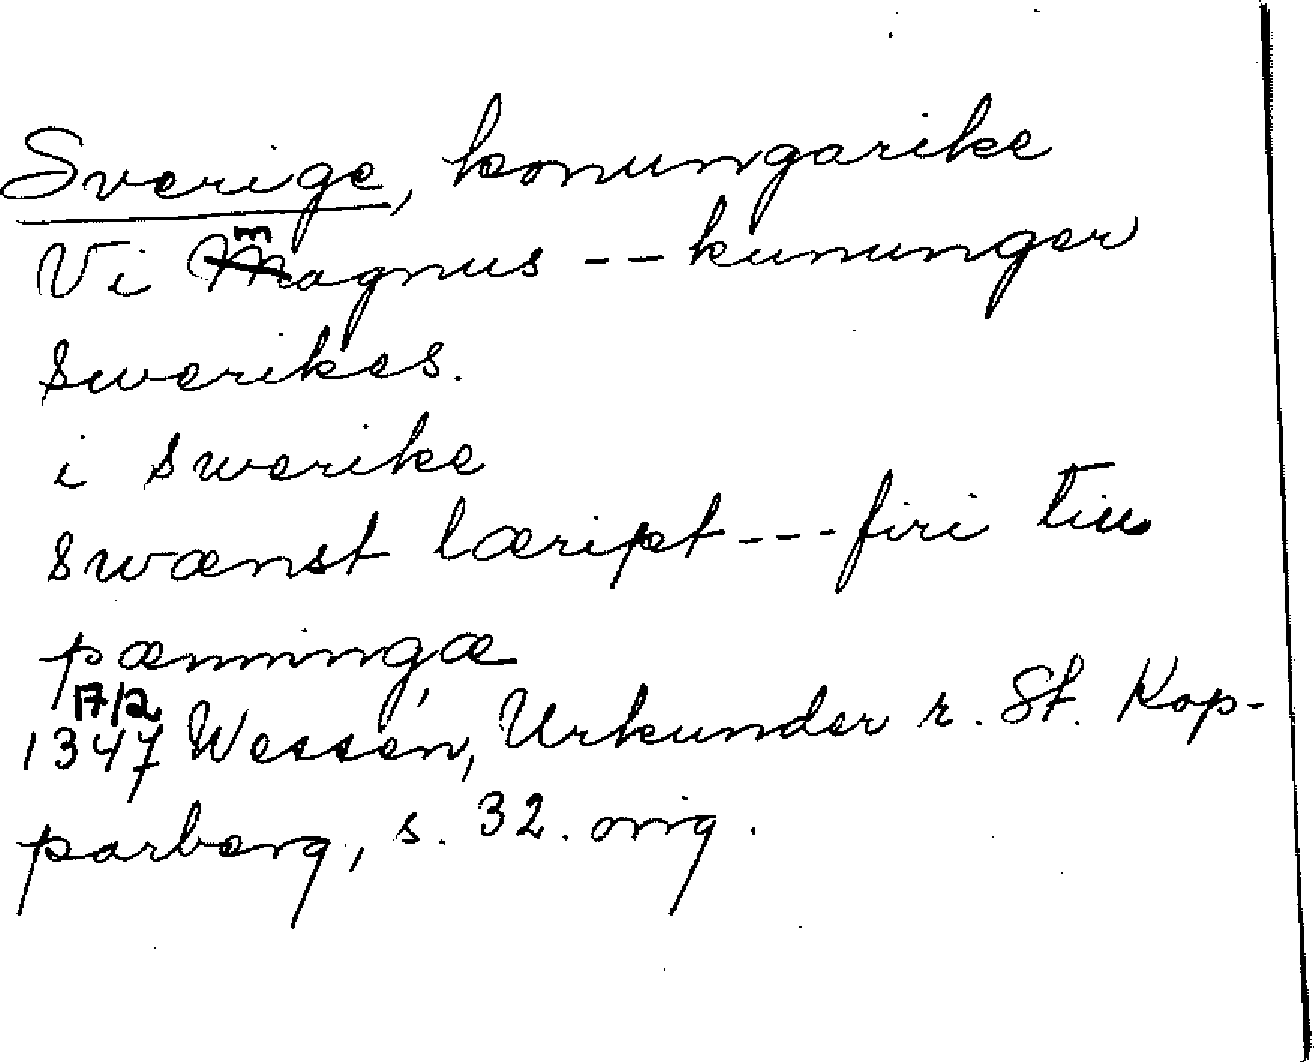 Sverige, konungarike
Vi magnus -- kununger
swerikes.
i swerike
swænst læript --- firi tiu
pænningæ
17/2
1347 Wessén, Urkunder r. St. Kop-
parberg, s. 32. orig.